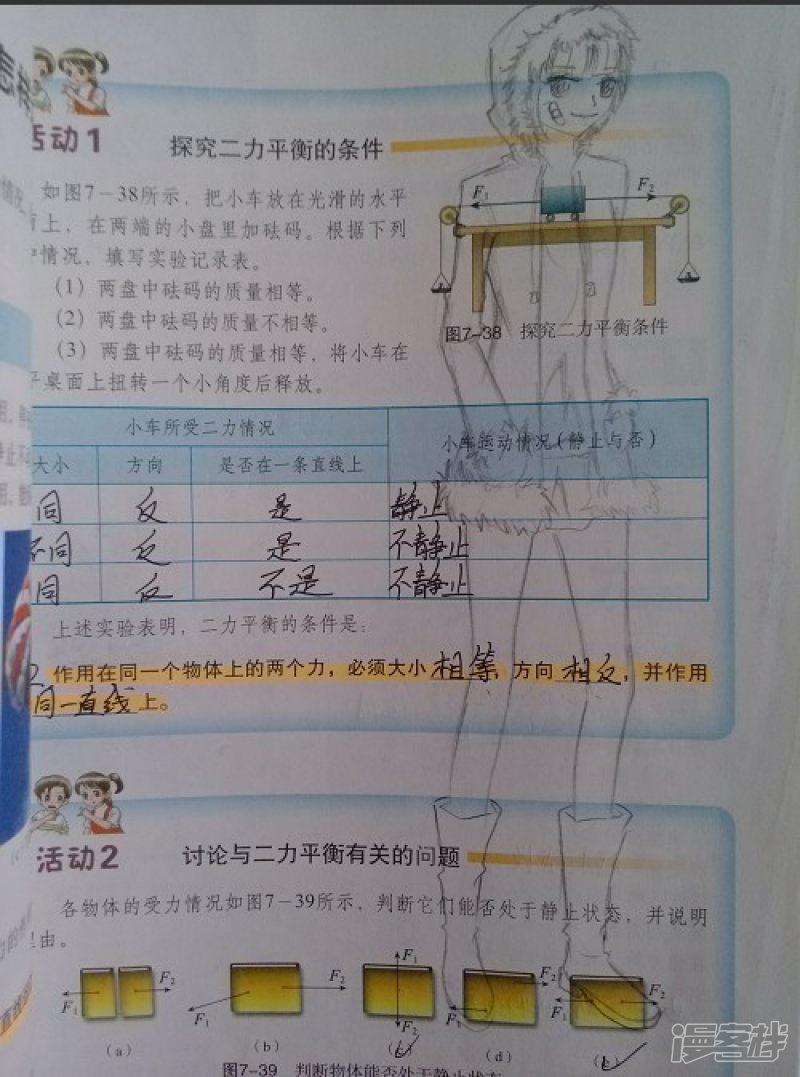 活动1
探究二力平衡的条件
如图7-38所示，把小车放在光滑的水平
上，在两端的小盘里加砝码。根据下列
情况，填写实验记录表。
(1) 两盘中砝码的质量相等。
(2) 两盘中砝码的质量不相等。
(3) 两盘中砝码的质量相等，将小车在
桌面上扭转一个小角度后释放。
F₁ F₂
图7-38 探究二力平衡条件
小车所受二力情况 小车运动情况(静止与否)
大小 方向 是否在一条直线上
同 反 是 静止
不同 反 是 不静止
同 反 不是 不静止
上述实验表明，二力平衡的条件是：
作用在同一个物体上的两个力，必须大小相等，方向相反，并作用
同一直线上。
活动2
讨论与二力平衡有关的问题
各物体的受力情况如图7-39所示，判断它们能否处于静止状态，并说明
由。
F₁ F₂ F₁ F₂ F₁ F₂ F₁ F₂ F₁ F₂
(a) (b) (c) (d) (e)
图7-39 判断物体能否处于静止状态
漫客栈